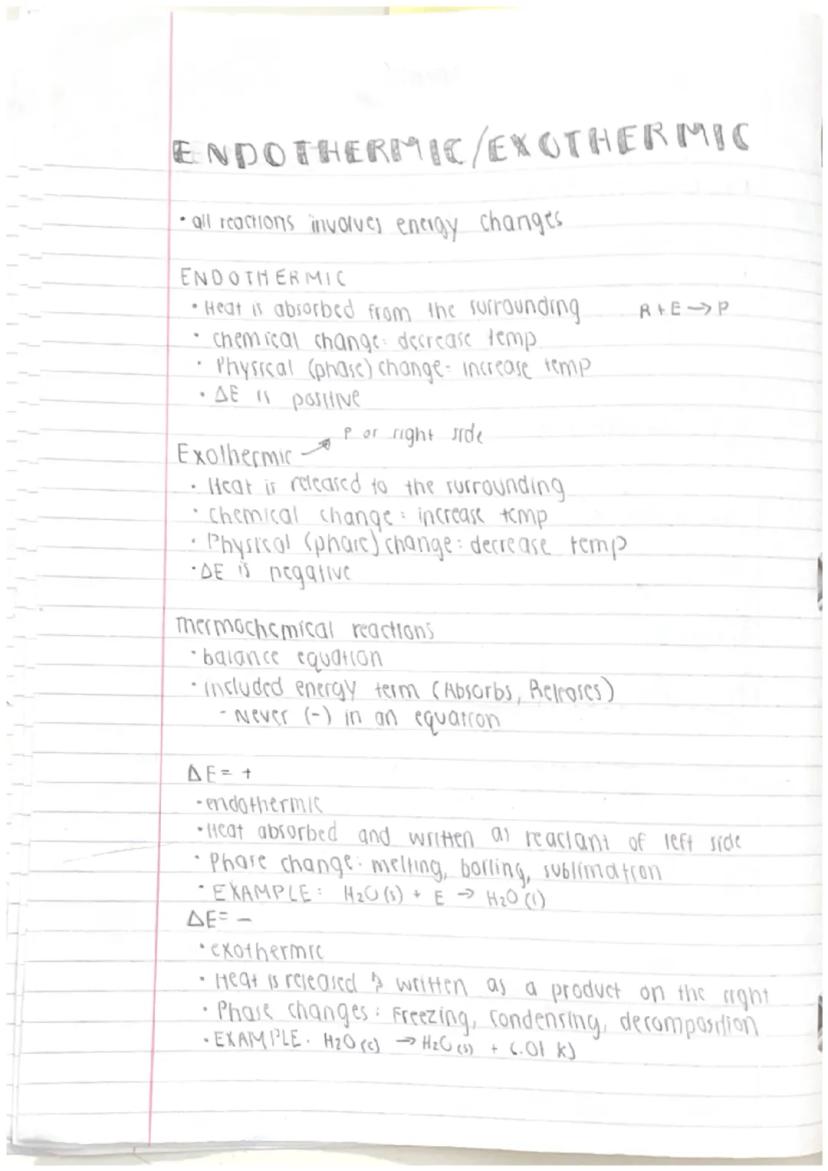 ENDOTHERMIC/EXOTHERMIC
• all reactions involves energy changes
ENDOTHERMIC
• Heat is absorbed from the surrounding R + E → P
• chemical change: decrease temp
• Physical (phase) change: increase temp
• ΔE is positive
P or right side
Exothermic
• Heat is released to the surrounding
• chemical change: increase temp
• Physical (phase) change: decrease temp
• ΔE is negative
Thermochemical reactions
• balance equation
• included energy term (Absorbs, Releases)
- Never (-) in an equation
ΔE = +
• endothermic
• Heat absorbed and written as reactant of left side
• Phase change: melting, boiling, sublimation
• EXAMPLE: H2O(s) + E → H2O(l)
ΔE = -
• exothermic
• Heat is released & written as a product on the right
• Phase changes: Freezing, condensing, decomposition
• EXAMPLE. H2O(l) → H2O(s) + 6.01 kJ